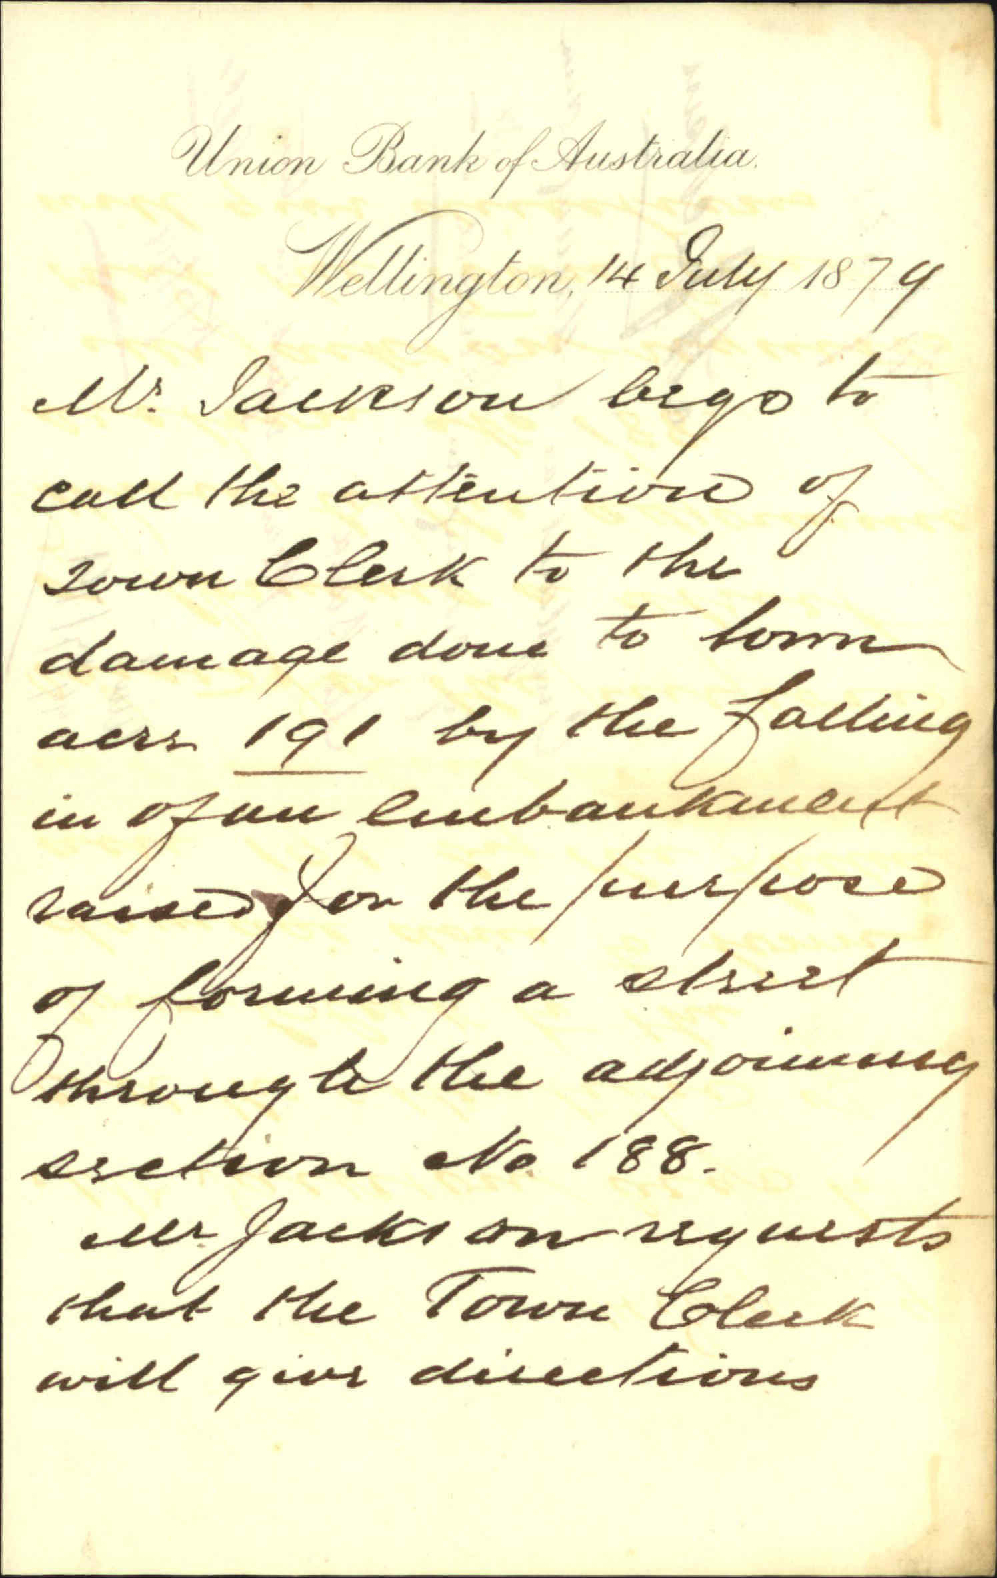 Union Bank of Australia.
Wellington, 14 July 1879
Mr. Jackson begs to
call the attention of
Town Clerk to the
damage done to town
acre 191 by the falling
in of an embankment
raised for the purpose
of forming a street
through the adjoining
section No. 188.
Mr Jackson requests
that the Town Clerk
will give directions